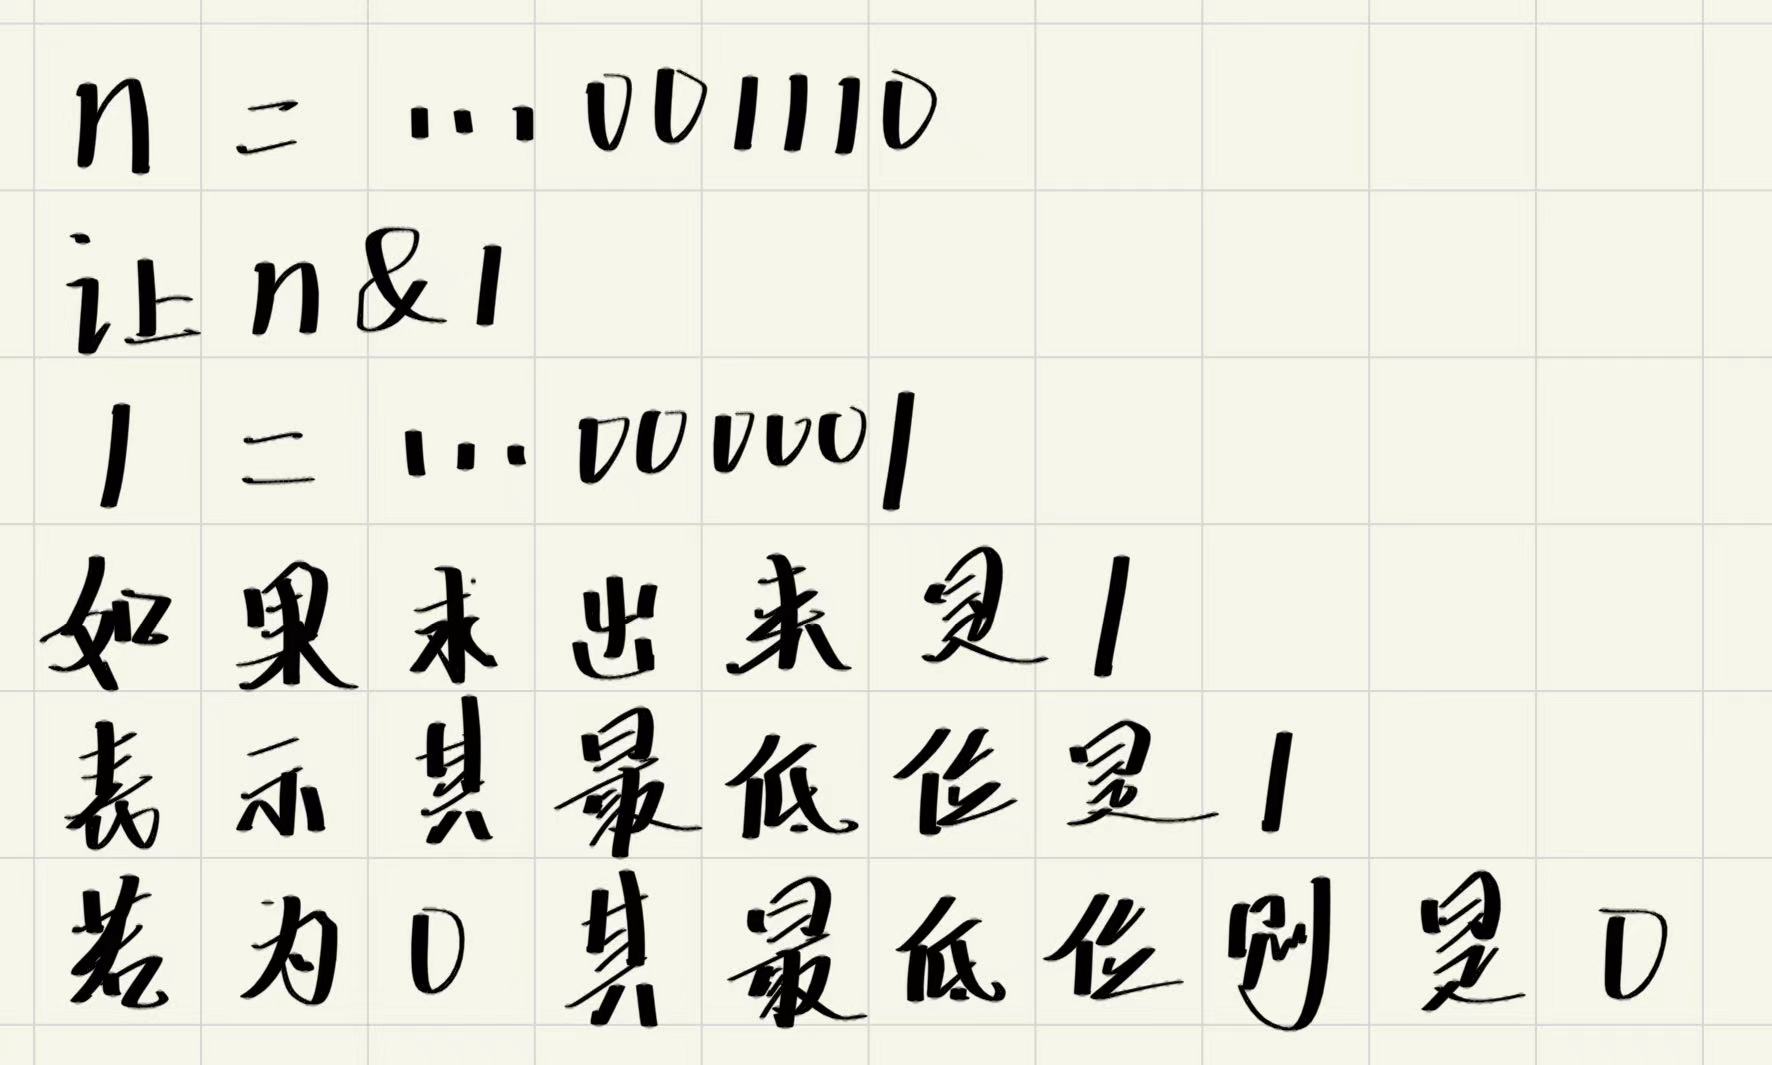 n = ... 001110
让 n & 1
1 = ... 000001
如果求出来是1
表示其最低位是1
若为0其最低位则是0